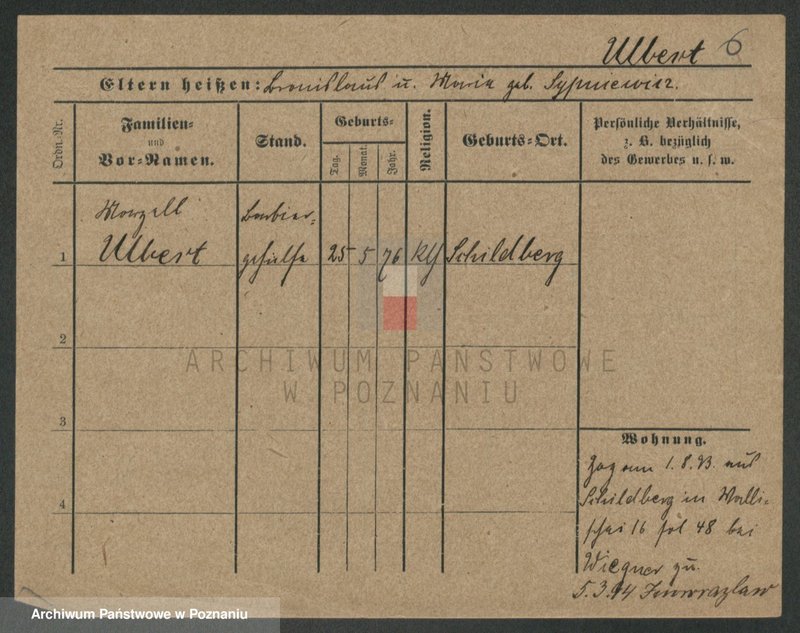 Ulbert 6
Eltern heißen: Bronislaus u. Maria geb. Sypniewicz.
Ordn.-Nr.
Familien- und Vor-Namen.
Stand.
Geburts-
Tag. Monat. Jahr.
Religion.
Geburts-Ort.
Persönliche Verhältnisse,
z. B. bezüglich
des Gewerbes u. s. w.
Marzell Barbier-
1 Ulbert gehülfe 25 5 76 Schildberg
2
ARCHIWUM PAŃSTWOWE
W POZNANIU
3
Wohnung.
Zog am 1.8.93 aus
Schildberg in Walli-
schei 16 fol 48 bei
Wiegner zu.
4
5.3.94 Inowrazlaw
Archiwum Państwowe w Poznaniu